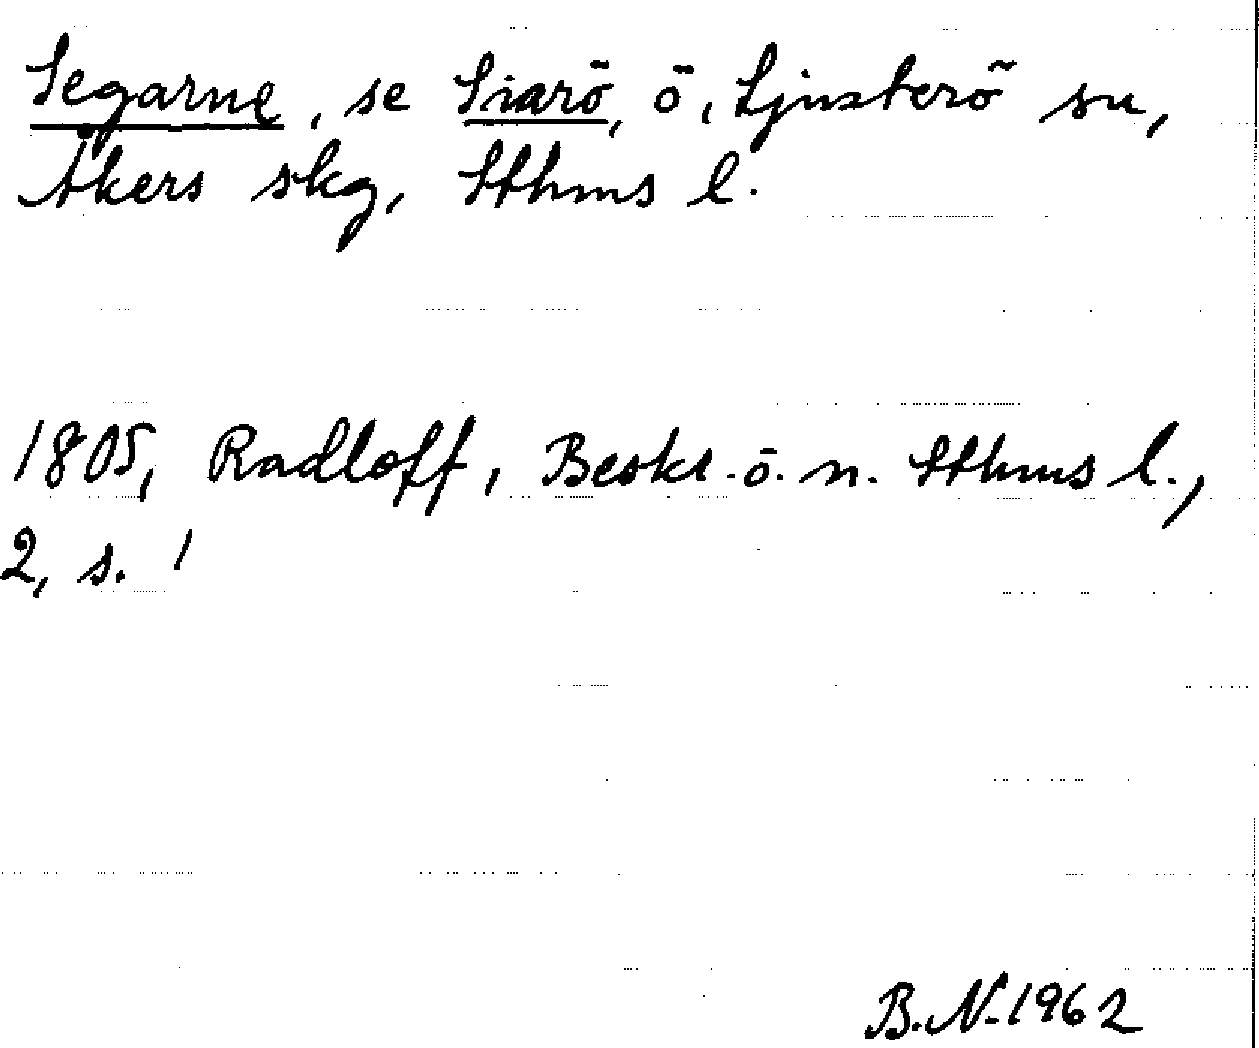 Segarne, se Siarö, ö, Ljusterö sn,
Åkers skg, Sthms l.
1805, Radloff, Beskr. ö. n. Sthms l.,
2, s. 1
B.N. 1962